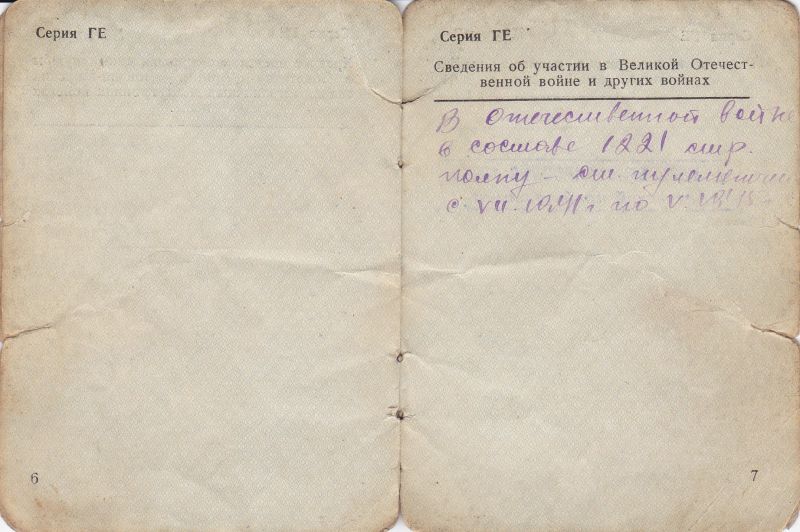 Серия ГЕ
6
Серия ГЕ
Сведения об участии в Великой Отечест-
венной войне и других войнах
В Отечественной войне
в составе 1221 стр.
полку - ст.
с VII. 1941 г по V.
7